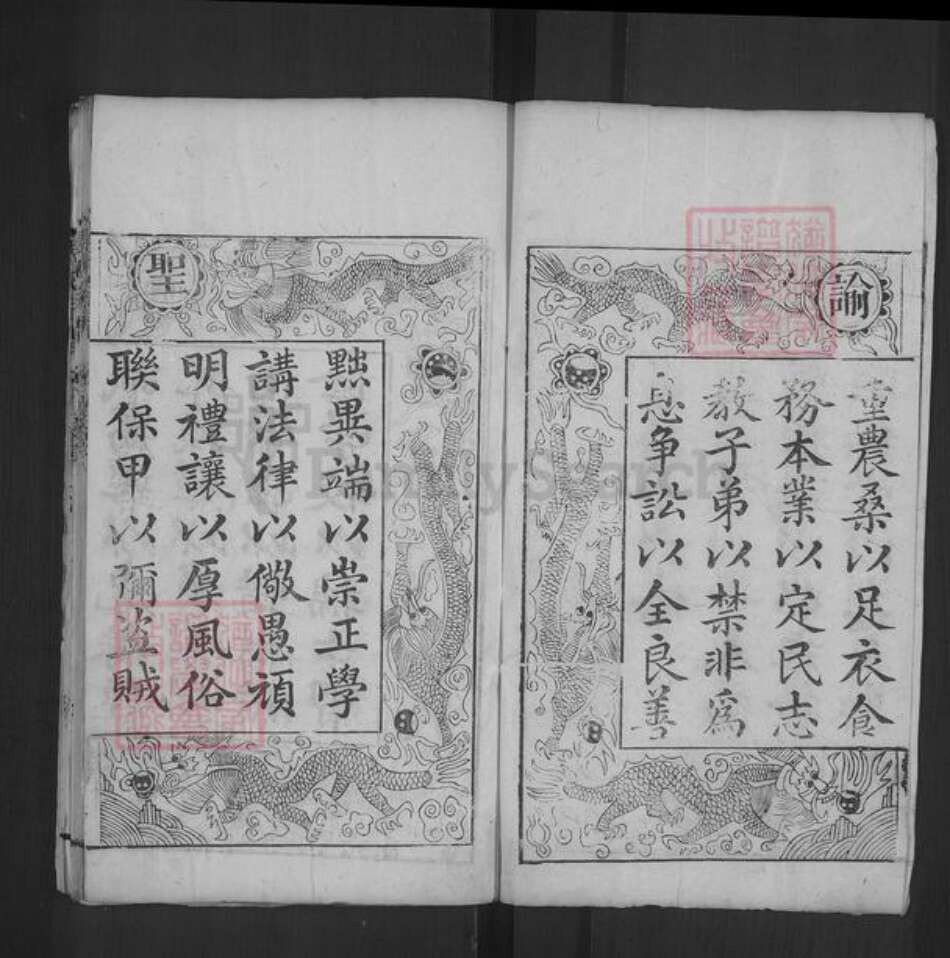 諭
重農桑以足衣食
務本業以定民志
教子弟以禁非為
息争訟以全良善
聖
黜異端以崇正學
講法律以儆愚頑
明禮讓以厚風俗
聯保甲以彌盜賊
FamilySearch